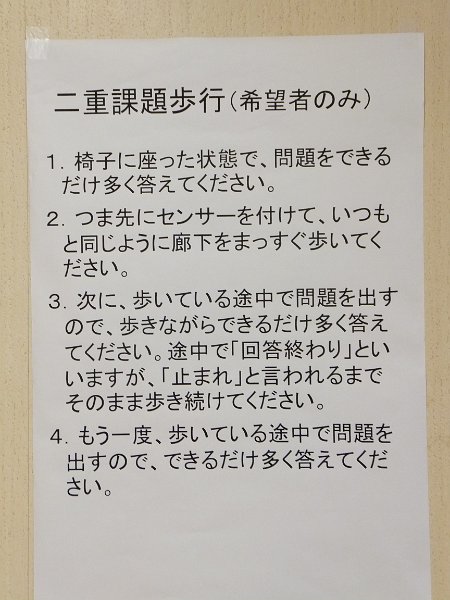 二重課題歩行（希望者のみ）
１．椅子に座った状態で、問題をできる
だけ多く答えてください。
２．つま先にセンサーを付けて、いつも
と同じように廊下をまっすぐ歩いてく
ださい。
３．次に、歩いている途中で問題を出す
ので、歩きながらできるだけ多く答え
てください。途中で「回答終わり」とい
いますが、「止まれ」と言われるまで
そのまま歩き続けてください。
４．もう一度、歩いている途中で問題を
出すので、できるだけ多く答えてくだ
さい。